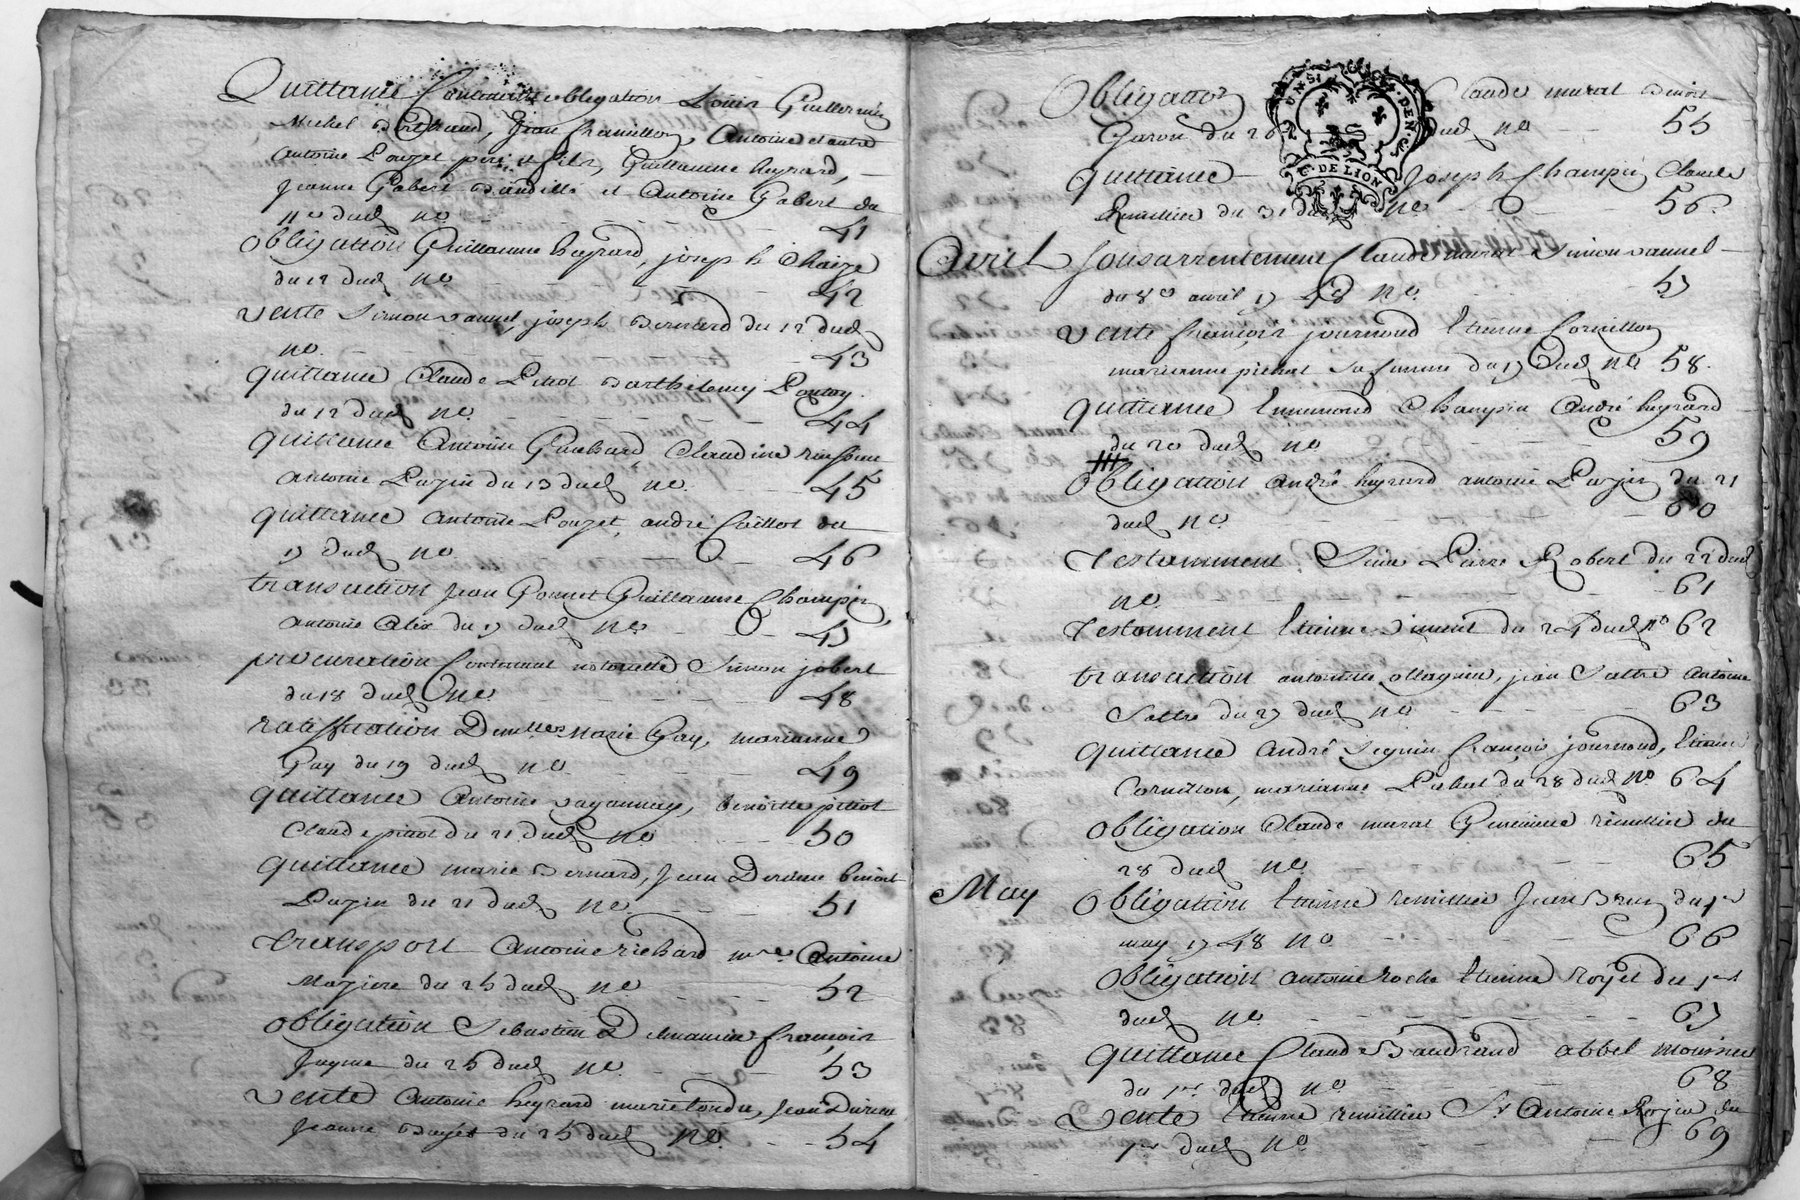 Quittance Contenant obligation Louis Guillermin
Michel Bertrand, Jean Chamillon, Antoine et autre
Antoine Pouzet pere et fils, Guillaume heyrard,
Jeanne Gabert et Antoine Gabert du
11e dud no 41
Obligation Guillaume heyrard, joseph Chaize
du 12 dud no 42
Vente Simon vannel, joseph Bernard du 12 dud
no 43
quittance Claude Pitiot Barthelemy
du 12 dud no 44
quittance Antoine Guichard Claudine
antoine Pazin du 13 dud no 45
quittance antoine Pouzet, andré Caillot du
17 dud no 46
transaction Jean Gonnet Guillaume Champin
antoine Alex du 17 dud no 47
procuration Contenant Simon jobert
du 18 dud no 48
ratiffication Demlles Marie Gay, marianne
Gay du 19 dud no 49
quittance Antoine benoitte pitiot
Claude pitiot du 21 dud no 50
quittance marie Bernard, Jean Derieu benoit
Pazin du 21 dud no 51
Transport Antoine richard mre Antoine
Maziere du 25 dud no 52
obligation Sebastien françois
Jayme du 25 dud no 53
Vente Antoine heyrard marie tondu, Jean Durieu
Jeanne du 25 dud no 54
Obligation Claude murat Benoit
Garon du 26 dud no 55
UN SI
DEN
G. DE LION
quittance Joseph Champin Claude
Remillier du 31 dud no 56
Avril Sousarrentement Claude murat Simon vannel
du 8e avril 1748 no 57
Vente françois journoud Etienne Cornillon
marianne sa femme du 17 dud no 58
quittance Ennemond Champin André heyrard
du 20 dud no 59
Obligation andré heyrard antoine Pazin du 21
dud no 60
Testamment Sieur Pierre Robert du 22 dud
no 61
Testamment Etienne du 24 dud no 62
transaction antoinette ollagnier, jean Sattre Antoine
Sattre du 27 dud no 63
quittance André Seguin françois journoud, Etienne
Cornillon, marianne du 28 dud no 64
obligation Claude murat remillier du
28 dud no 65
May Obligation Etienne remillier Jean Brun du 1er
may 1748 no 66
obligation antoine roche Etienne royet du 1er
dud no 67
quittance Claude Baudrand abbel
du 1er dud no 68
Vente Etienne remillier Sr Antoine du
1er dud no 69